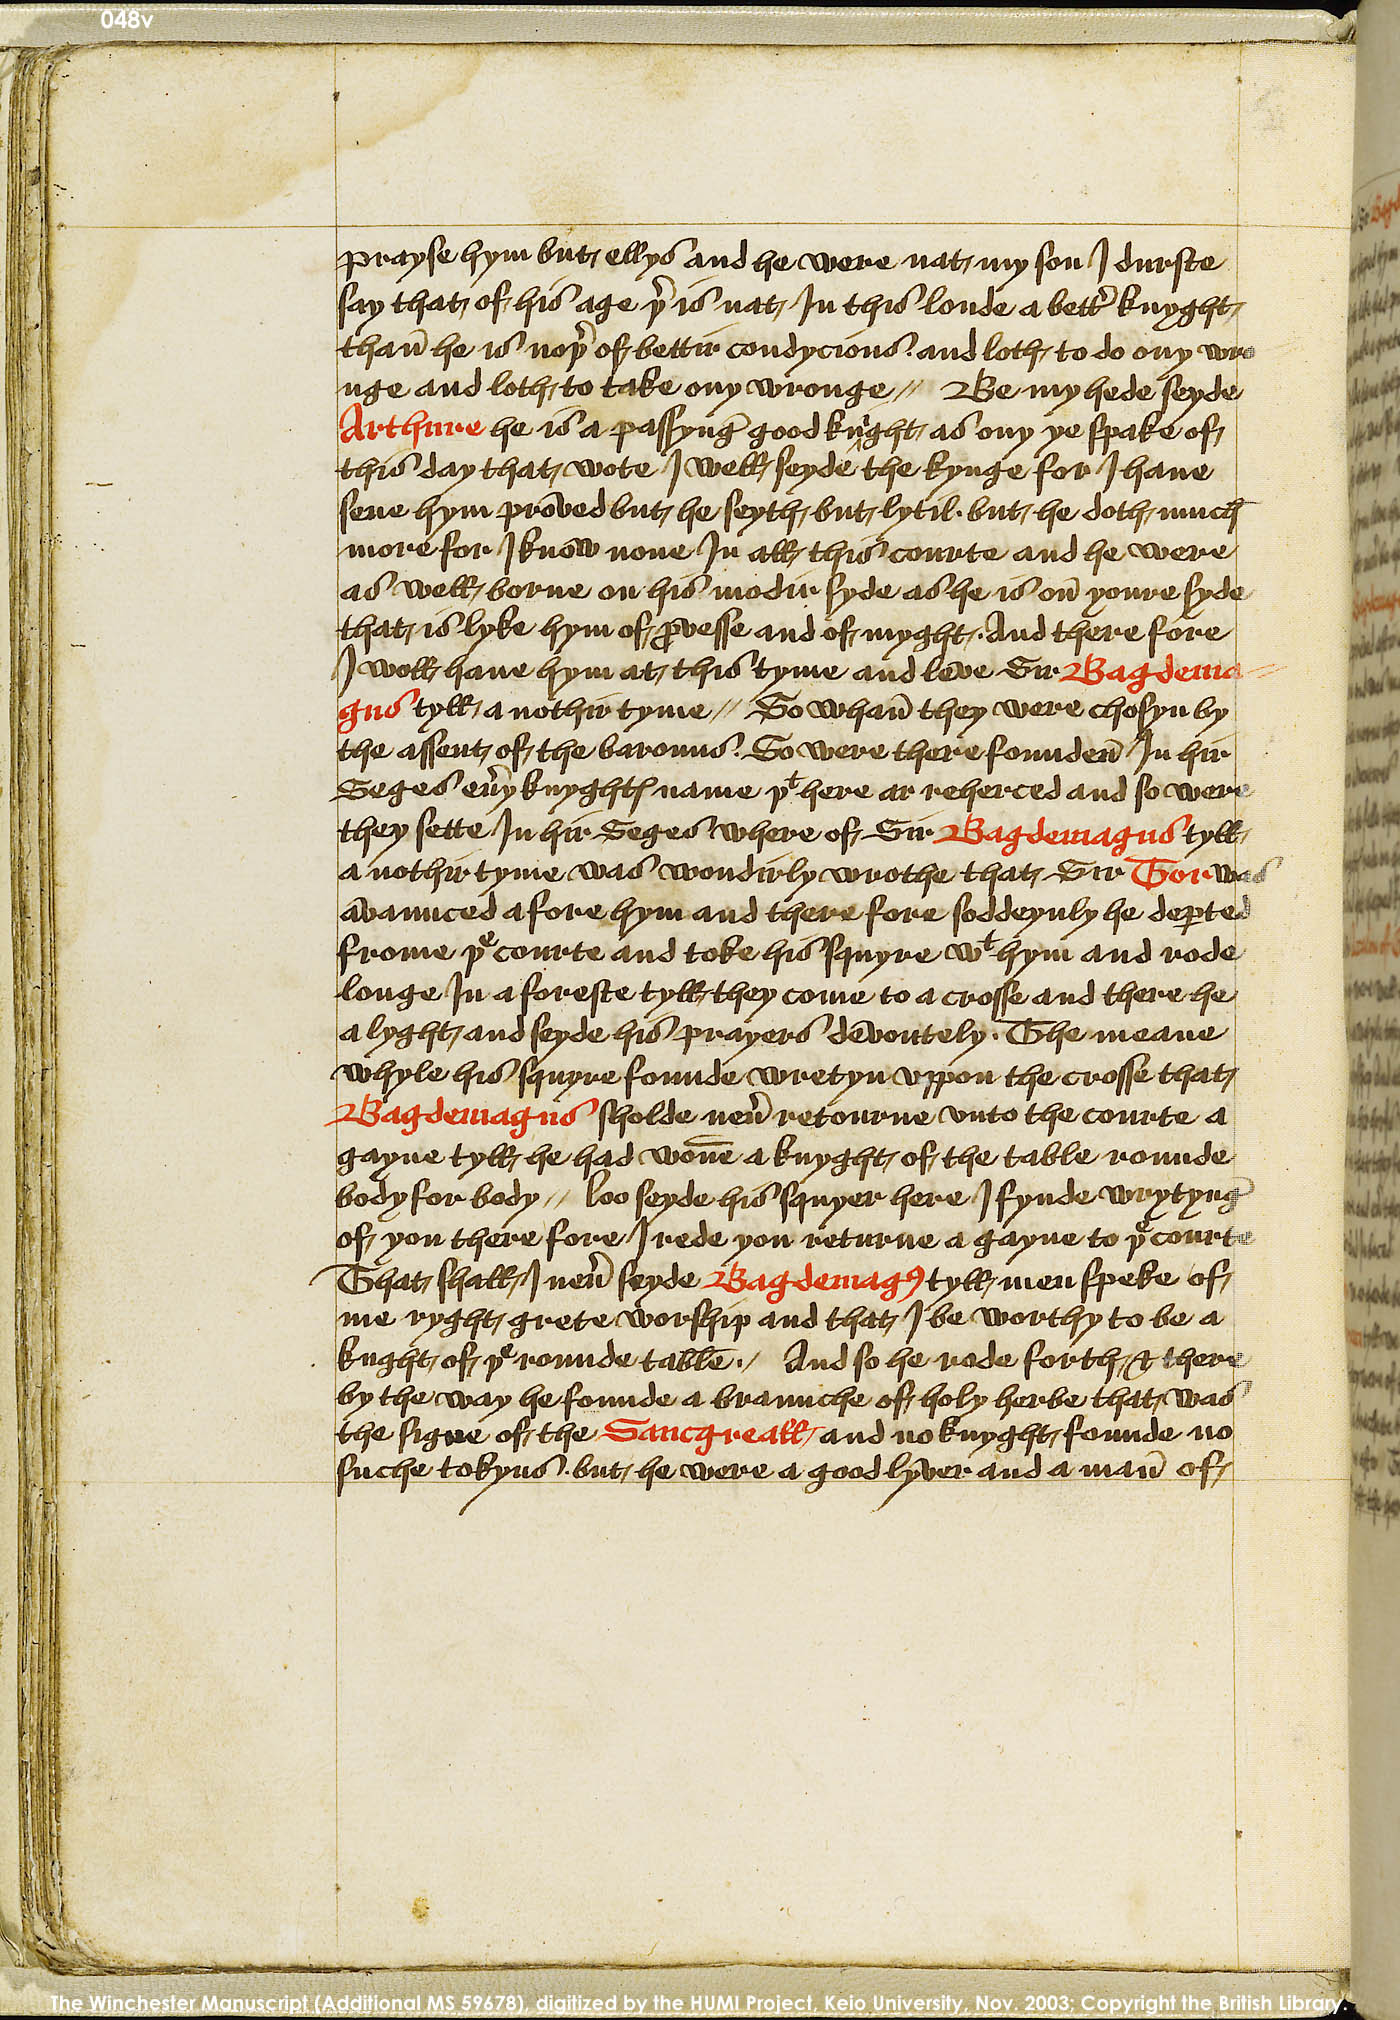 048v
prayse hym but ellys and he were nat my son I durste
say that of his age þr̄ is nat In this londe a bettr̄ knyght
than̄ he is noþr̄ of bettir condycions. and loth to do ony wro
nge and loth to take ony wronge // Be my hede seyde
Arthure he is a passynḡ good knyght as ony ye spake of
this day that wote I well seyde the kynge for I haue
sene hym proved but he seyth but lytil. but he doth much̄
more for I know none In all this courte and he were
as well borne on his modir syde as he is on̄ youre syde
that is lyke hym of ꝓvesse and of myght. And there fore
I woll haue hym at this tyme and leve Sir Bagdema
gus tyll a nothir tyme // So whan̄ they were chosyn by
the assent of the barouns. So were there founden̄ In hir
Seges eūy knyghtꝭ name þᵗ here ar reherced and so were
they sette In hir Seges where of Sir Bagdemagus tyll
a nothir tyme was wondirly wrothe that Sir Tor was
avaunced a fore hym and there fore soddeynly he deꝑted
frome þᵉ courte and toke his squyre wᵗ hym and rode
longe In a foreste tyll they come to a crosse and there he
a lyght and seyde his prayers devoutely. The meane
whyle his squyre founde wretyn vppon the crosse that
Bagdemagus sholde neū retourne vnto the courte a
gayne tyll he had won̄e a knyght of the table rounde
body for body // loo seyde his squyer here I fynde wrytynḡ
of you there fore I rede you returne a gayne to þᵉ courte
That shall I neū seyde Bagdemagꝰ tyll men speke of
me ryght grete worship and that I be worthy to be a
knght of þᵉ rounde table. / And so he rode forth & there
by the way he founde a braunche of holy herbe that was
the signe of the Sancgreall and no knyght founde no
suche tokyns. but he were a good lyver and a man̄ of
The Winchester Manuscript (Additional MS 59678), digitized by the HUMI Project, Keio University, Nov. 2003; Copyright the British Library.